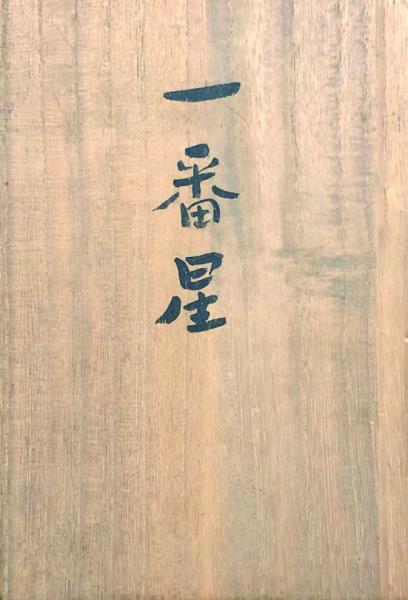 一番星